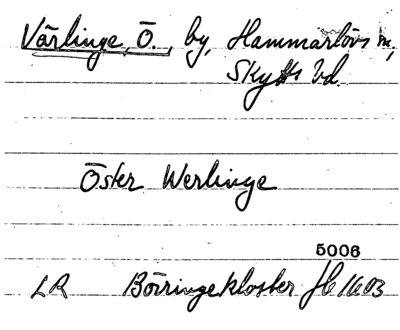 Värlinge, Ö., by, Hammarlövs sn,
Skytts hd.
Öster Werlinge
5006
LR Börringekloster Jb 1603